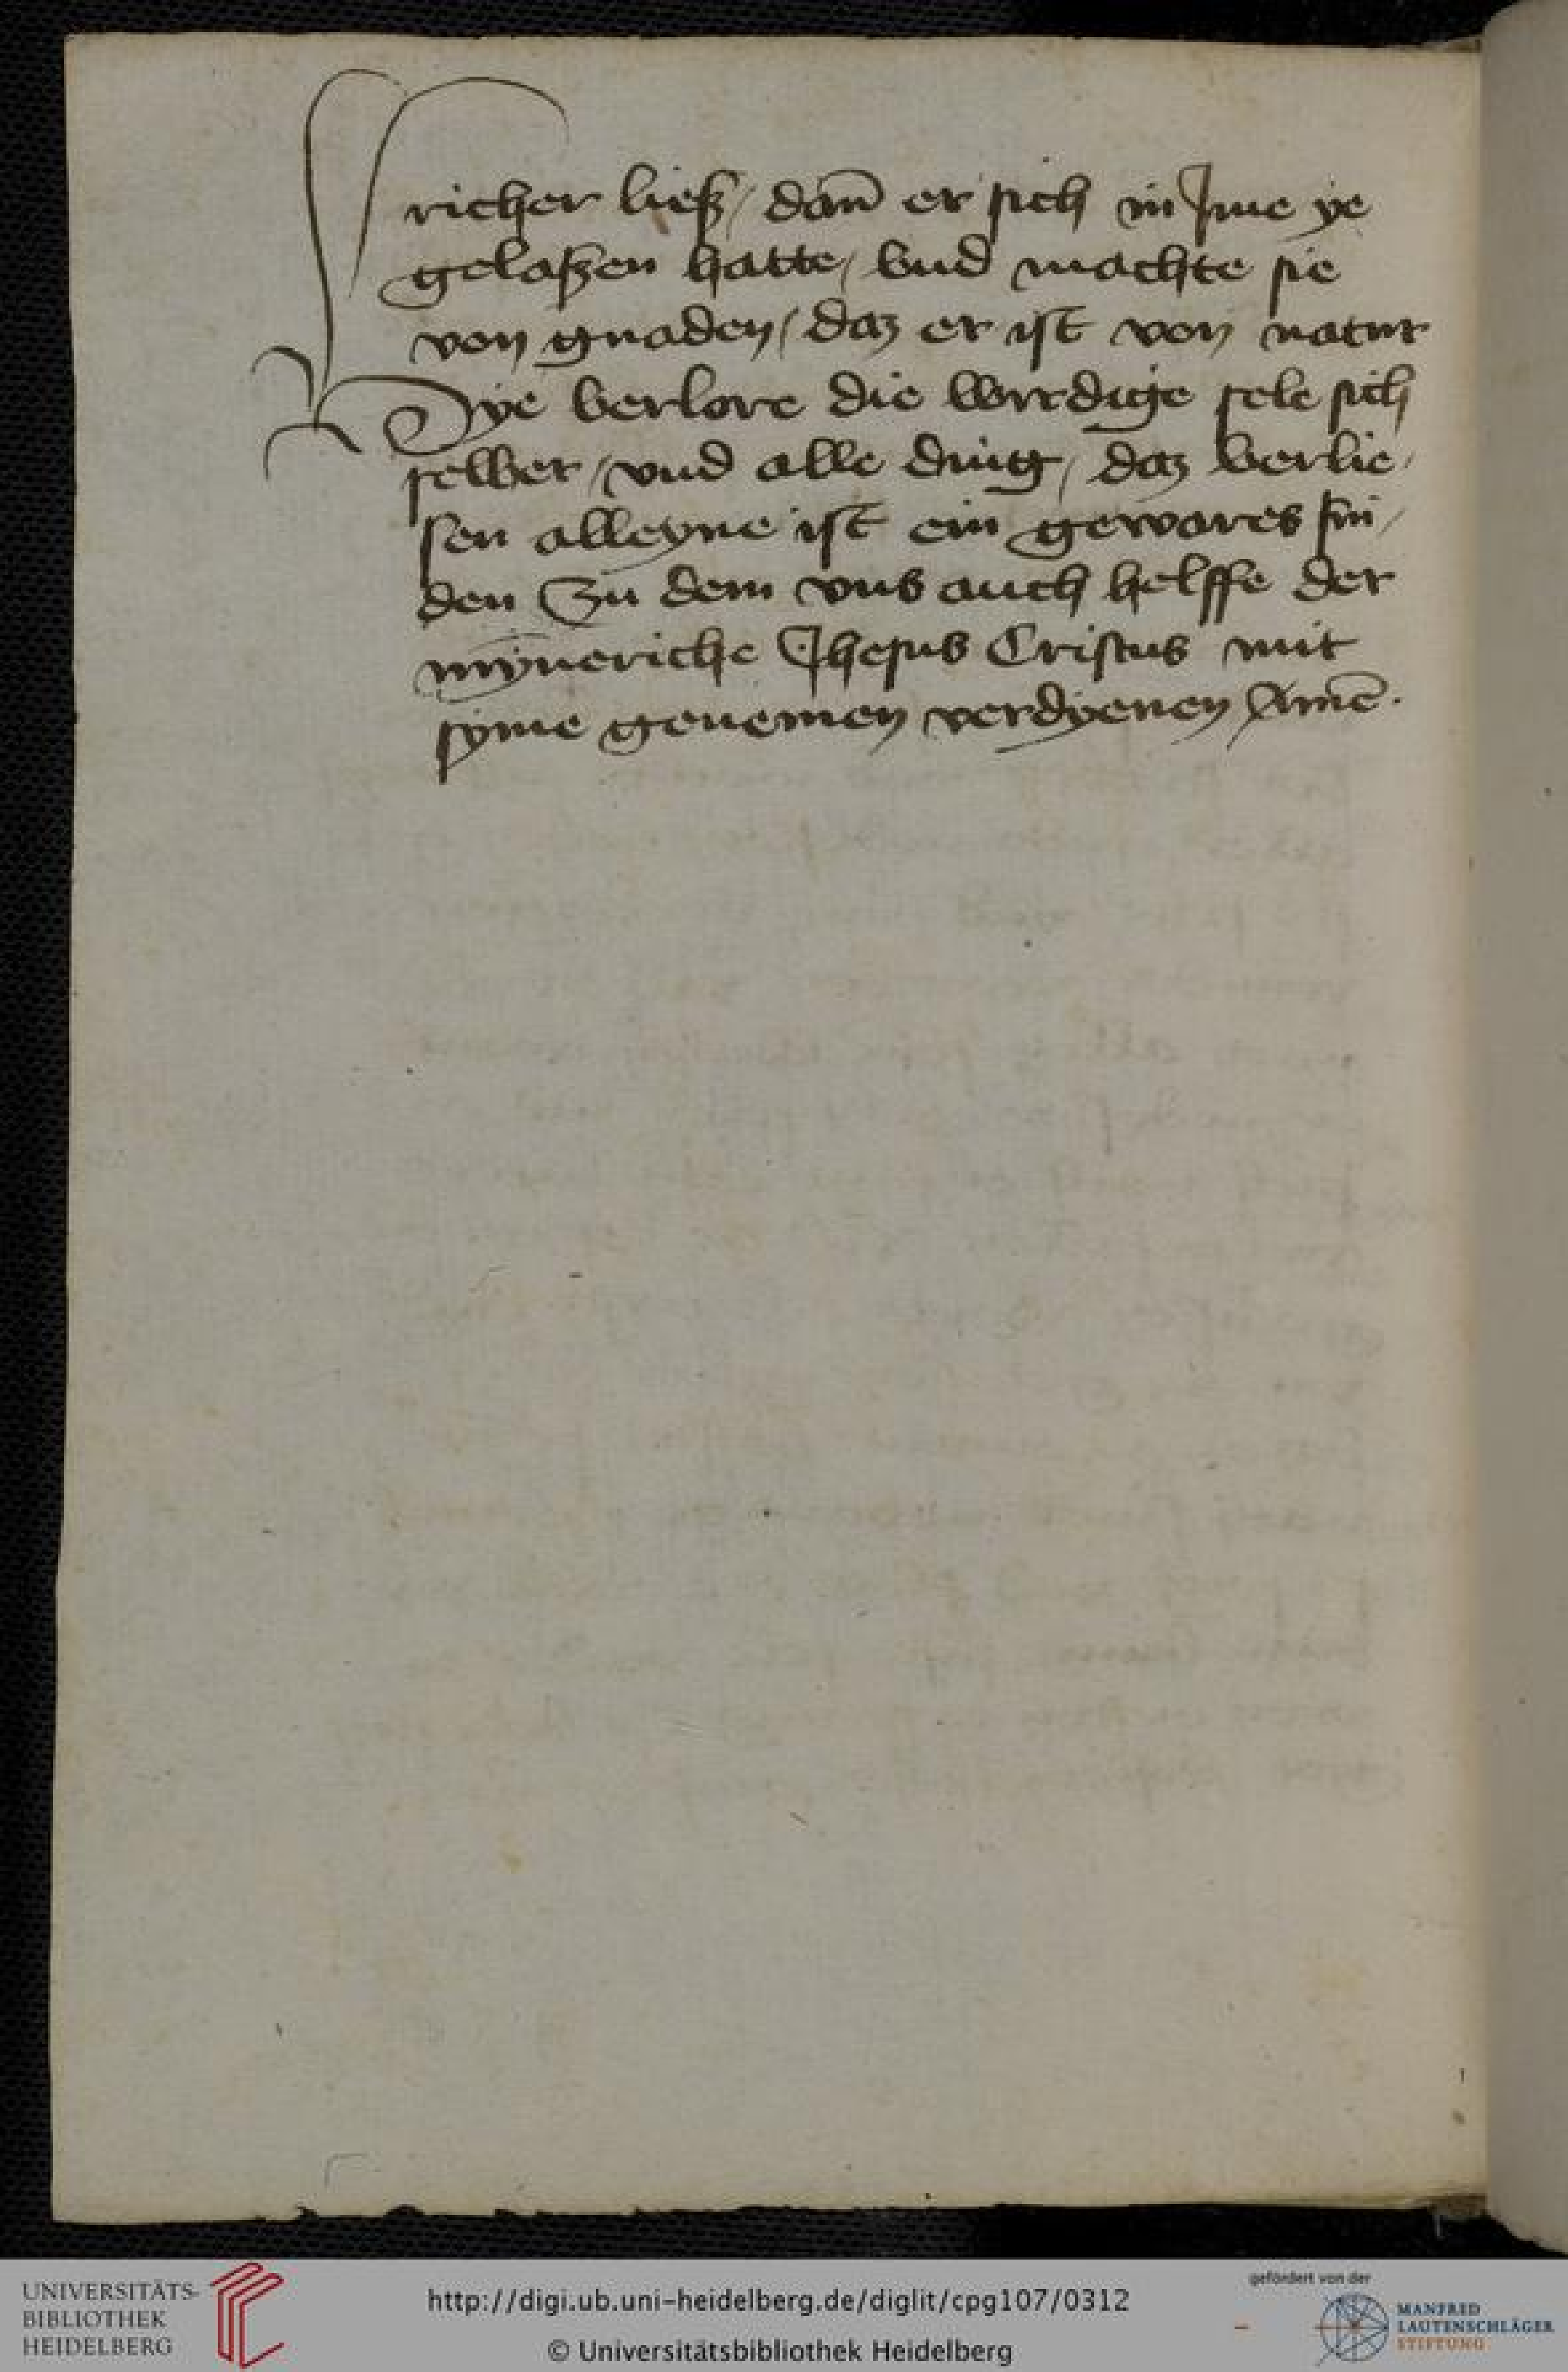 richer ließ / dan̄ er sich in Jme ye
gelaßen hatte / vnd machte sie
von gnaden / daz er ist von natur
Hye verlore die wirdige sele sich
selber / vnd alle ding / daz verlie /
sen alleyne ist ein gewares fin /
den Zu dem vns auch helffe der
mȳneriche Jhesus Cristus mit
syme genemen verdyenen Amē .
UNIVERSITÄTS-
BIBLIOTHEK
HEIDELBERG
http://digi.ub.uni-heidelberg.de/diglit/cpg107/0312
© Universitätsbibliothek Heidelberg
gefördert von der
MANFRED
LAUTENSCHLÄGER
STIFTUNG